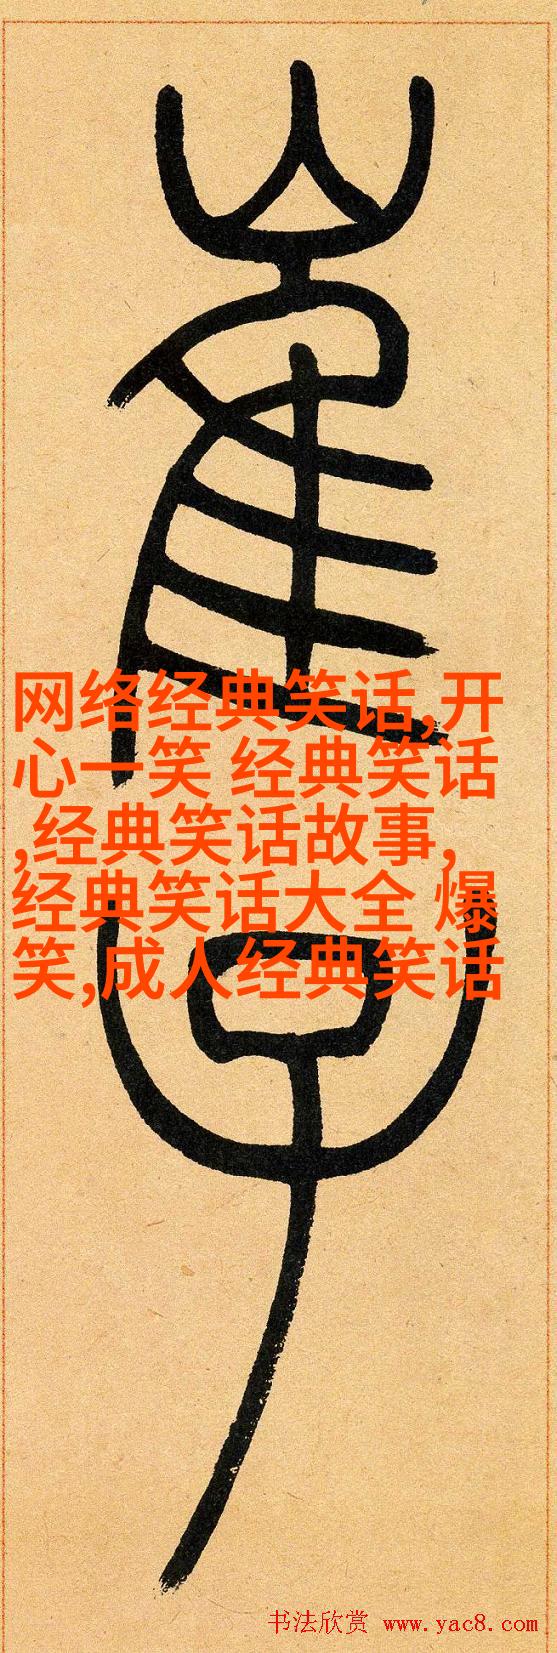 崔子
网络经典笑话,开
心一笑 经典笑话
,经典笑话故事,
经典笑话大全 爆
笑,成人经典笑话
书法欣赏 www.yac8.com